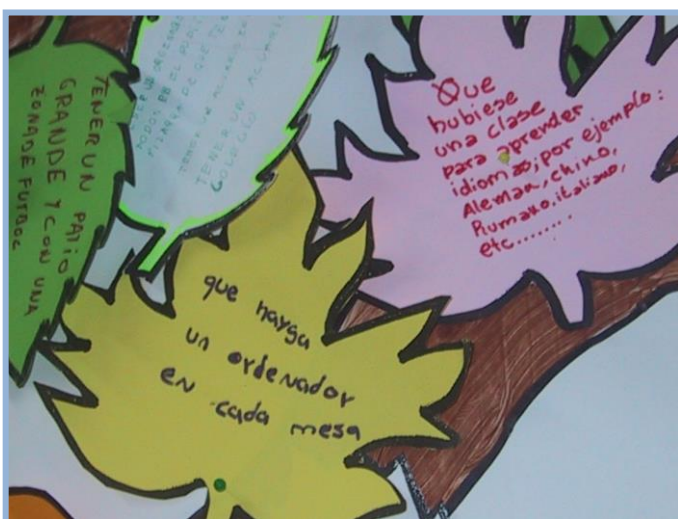 TENER UN PATIO
GRANDE Y CON UNA
ZONA DE FUTBOL
TENER UN
COLEGIO
Que
hubiese
una clase
para aprender
idiomas; por ejemplo:
Aleman, chino,
Rumano, italiano,
etc........
que hayga
un ordenador
en cada mesa